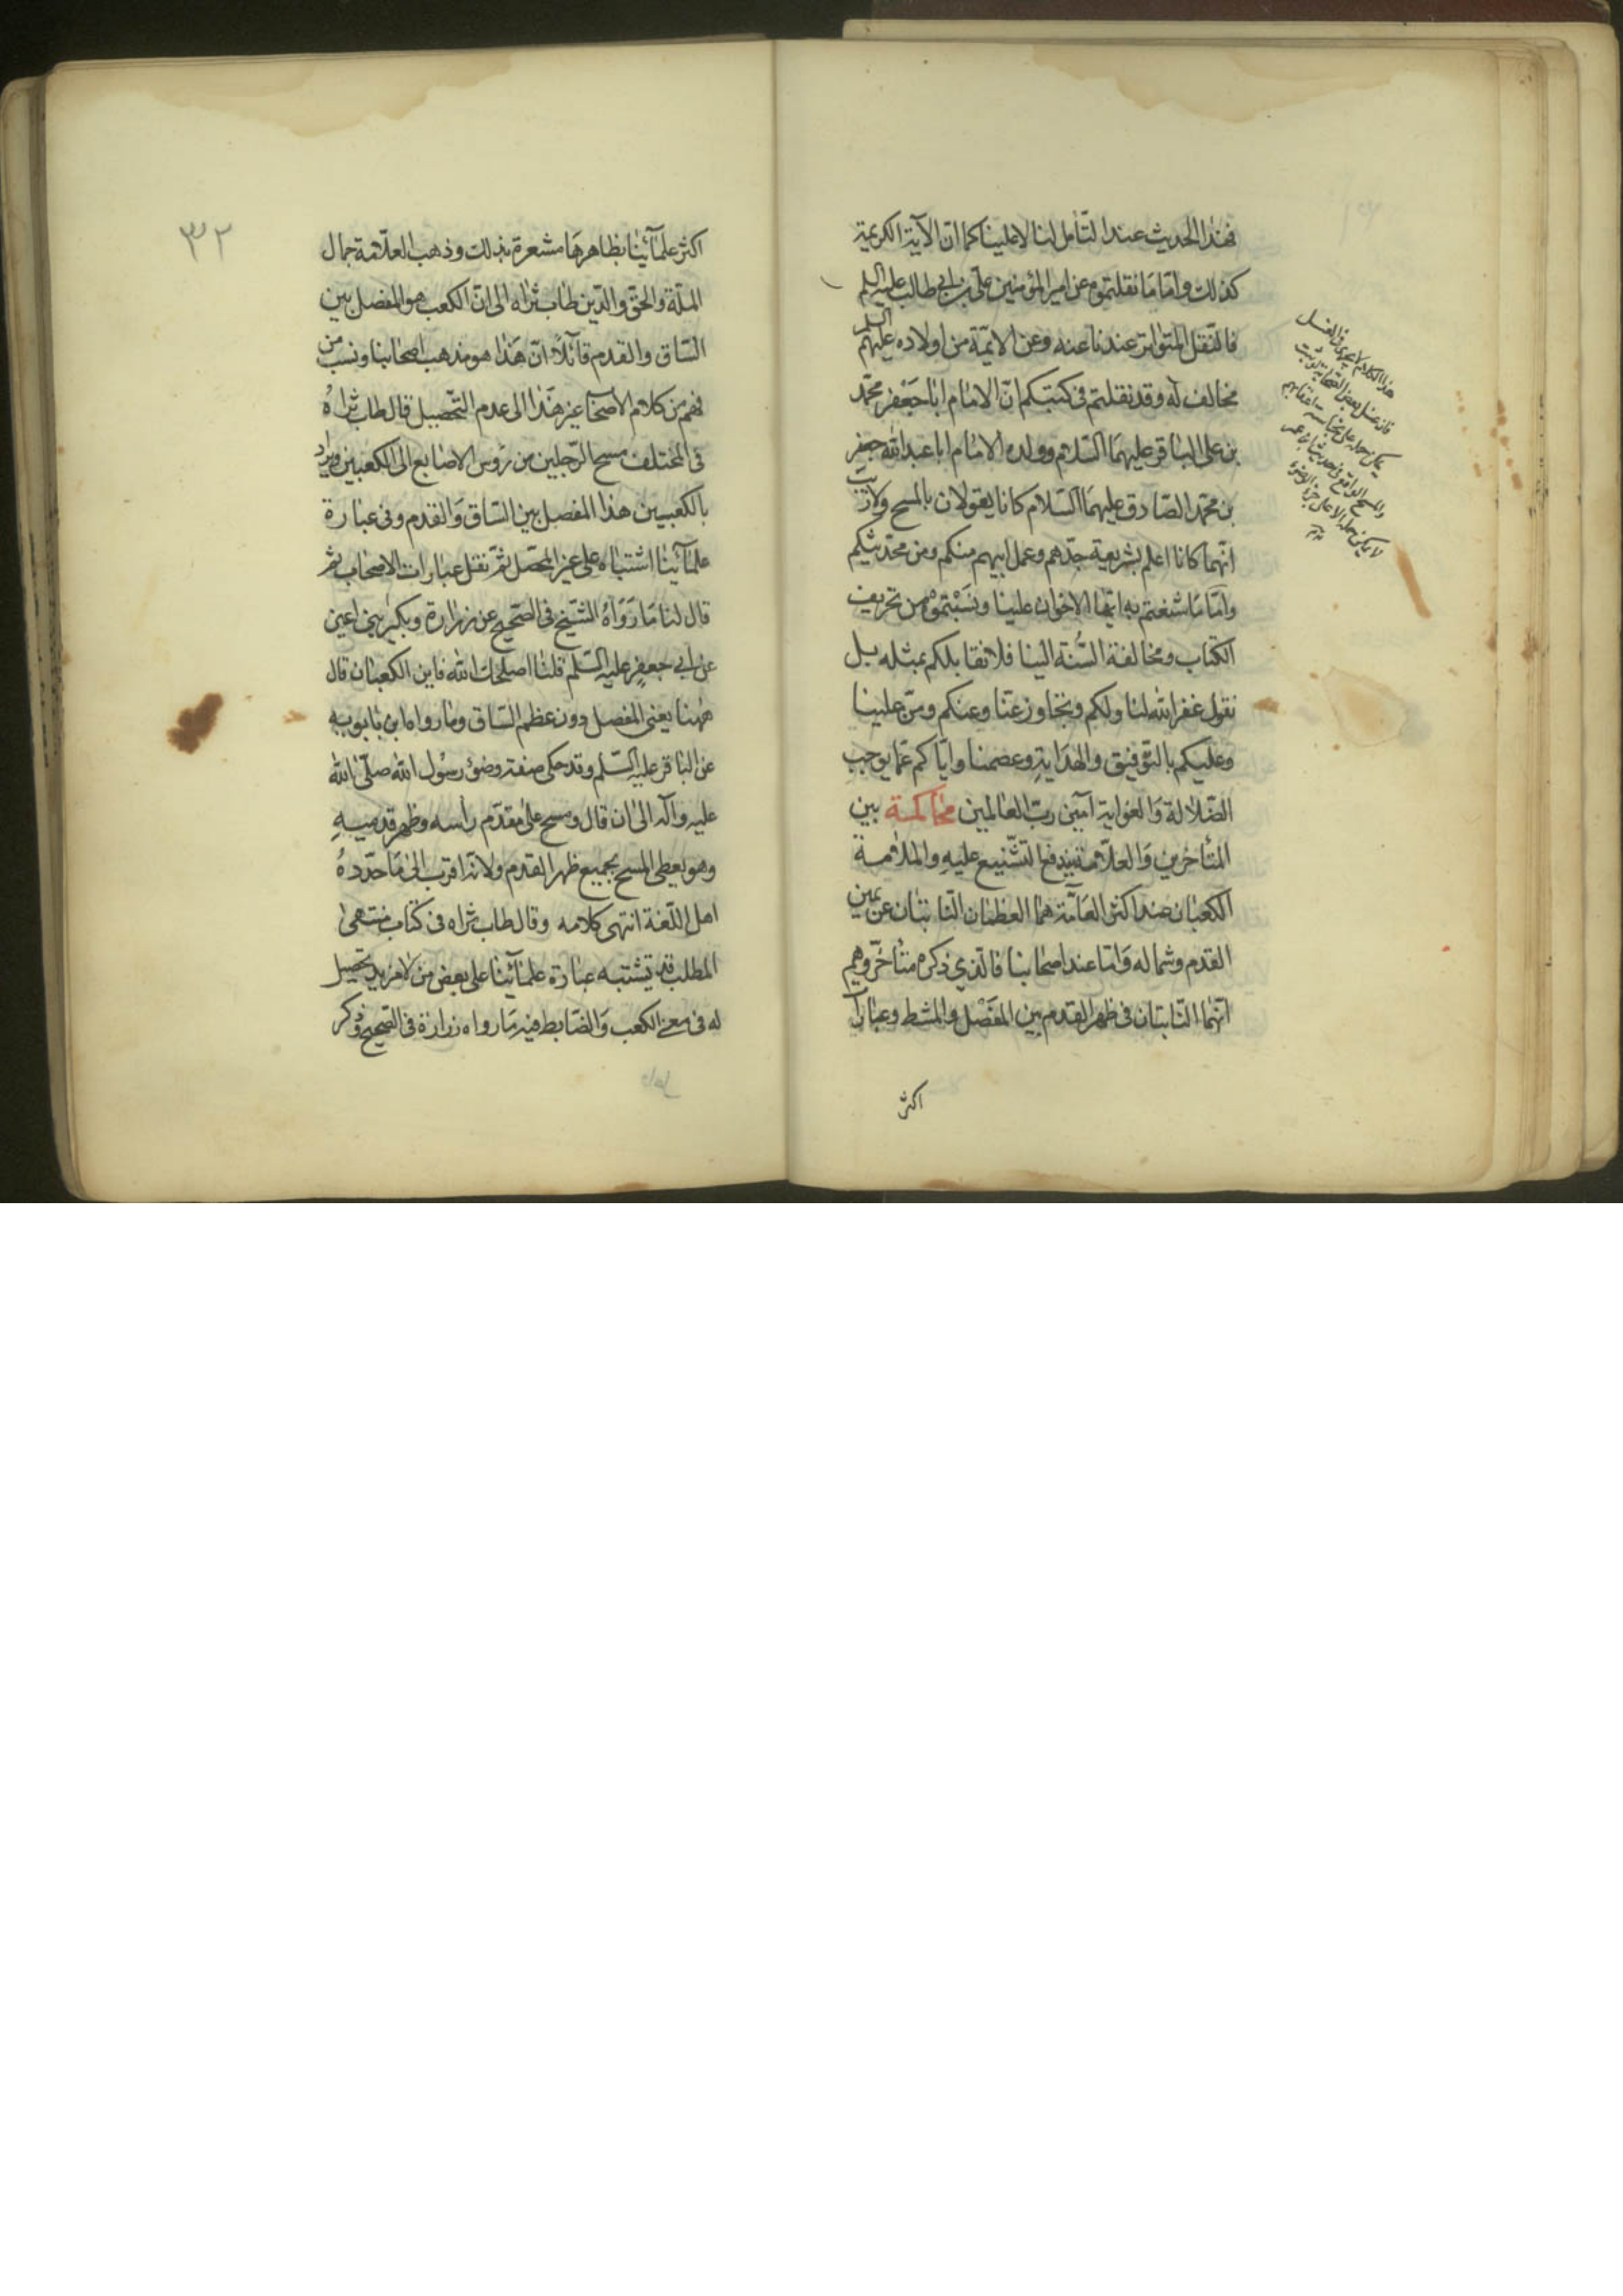 فهذا الحديث عند التأمل لنا لا علينا كما انّ الآية الكريمة
كذلك وامّا مَا نقلتموه عن امير المؤمنين علىّ بن ابى طالب عليه السلم
فالنّقل المتواتر عندنا عنه وعن الائمّة من اولاده عليهم السلم
مخالف له وقد نقلتم فى كتبكم انّ الامام ابا جَعْفر محمّد
بن على الباقر عليهمَا السّلام وولده الامام ابا عبد الله جعفر
بن محمّد الصّادق عليهمَا السّلام كانا يقولان بالمسح ولاريب
انّهما كانا اعلم بشريعة جدّهم وعمل ابيهم منكم ومن محدّثيكم
وامّا مَا شنعتم به ايّها الاخوان علينا ونسَبْتموْه من تحريف
الكتاب ومخالفة السُّنة الينا فلا نقابلكم بمثله بل
نقول غفر الله لنا ولكم وتجاوز عنّا وعنكم ومنّ علينا
وعليكم بالتّوفيق والهدَايةِ وعصمنا وايّاكم عمّا يوجب
الضّلالة وَالغواية آمين ربّ العالمين محَاكمة بين
المتأخرين وَالعلّامة يندفع التّشنيع عليهِ والملامة
الكعبان عند اكثر العَامّة هما العظمان النّاتئان عن يمين
القدم وشماله وَامّا عند اصحابنا فالّذي ذكره متأخّروهم
انّهما النّاتئان فى ظهر القدم بين المفَصْل والمشط وعبارات
اكثر
هذا الكلام لا يجرى فى الغسل
٣٢
اكثر علمآئنا بظاهرهَا مشعرة بذلك وذهب العلّامة جمال
الملّة والحقّ والدّين طاب ثراه الى انّ الكعب هو المفصل بين
السّاق والقدم قائلًا انّ هَذا هو مذهب اصحابنا ونسب من
فهم من كلام الاصحَاب غير هَذا الى عدم التّحصيل قال طاب ثراهُ
فى المختلف مسح الرّجلين من رؤس الاصابع الى الكعبين ويراد
بالكعبين هذا المفصل بين السّاق وَالقدم وفى عبارة
علمآئنا اشتباه على غير المحصّل ثمّ نقل عبارات الاصحاب ثمّ
قال لنا مَا رَوَاهُ الشّيخ فى الصّحيح عن زرارة وبكير بنى اعين
عن ابى جعفرٍ عليه السّلم قلنا اصلحك الله فاين الكعبان قال
ههنا يعنى المفصل دون عظم السّاق وما رواه ابن بابويه
عن الباقر عليه السّلم وقد حكى صفة وضوء رسُول الله صلّى الله
عليه وآله الى ان قال ومسح على مقدّم رأسه وظهر قدميهِ
وهو يعطى المسح بجميع ظهر القدم ولانّه اقرب الى مَا حدّدهُ
اهل اللّغة انتهى كلامه وقال طاب ثراه فى كتاب منتهى
المطلب قد تشتبه عبارة علمآئنا على بعض من لا مزيد تحصيل
له فى معنى الكعب وَالضّابط فيه مَا رواه زرارة فى الصّحيح وذكر